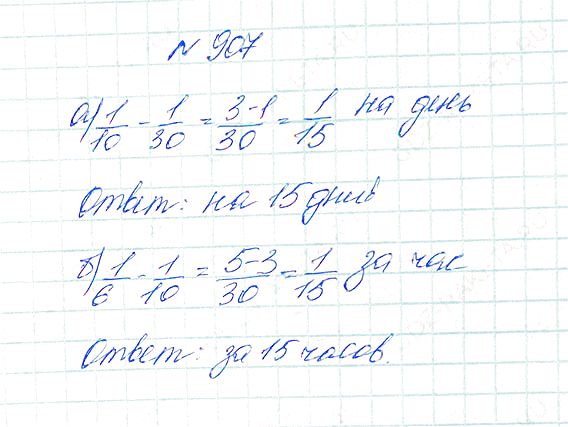 № 907
а) 1/10 - 1/30 = 3-1/30 = 1/15 на день
Ответ: на 15 дней
б) 1/6 - 1/10 = 5-3/30 = 1/15 за час
Ответ: за 15 часов.